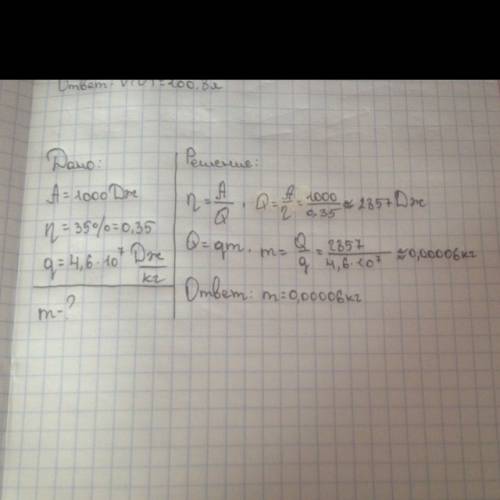 Ответ:
Дано:
A=1000 Дж
η=35%=0,35
q=4,6·10⁷ Дж/кг
m-?
Решение:
η=A/Q, Q=A/η=1000/0,35≈2857 Дж
Q=qm, m=Q/q=2857/4,6·10⁷≈0,00006кг
Ответ: m=0,00006кг